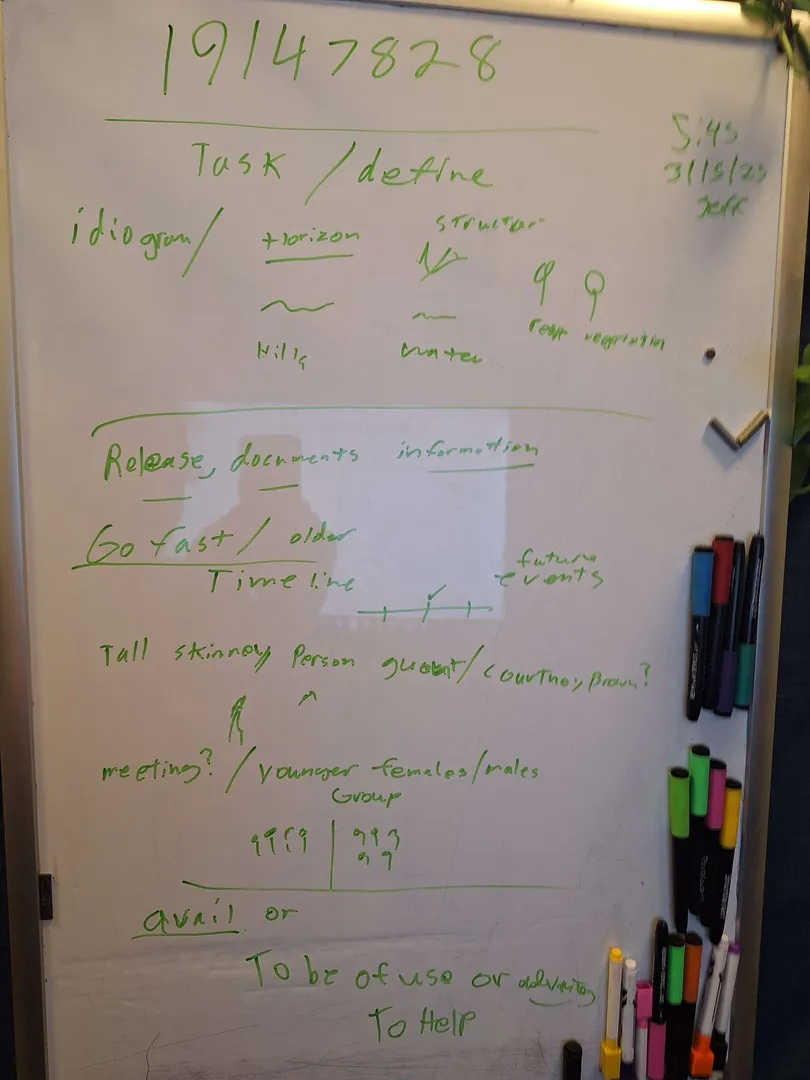 19147828
5:45
3/15/25
Jeff
Task / define
idiogram/
Horizon
structur
Hills
water
Release, documents information
Go fast/ older
Time line
future
events
Tall skinney Person /Courtney Brown?
meeting? / younger females/males
Group
avail or
To be of use or
To Help